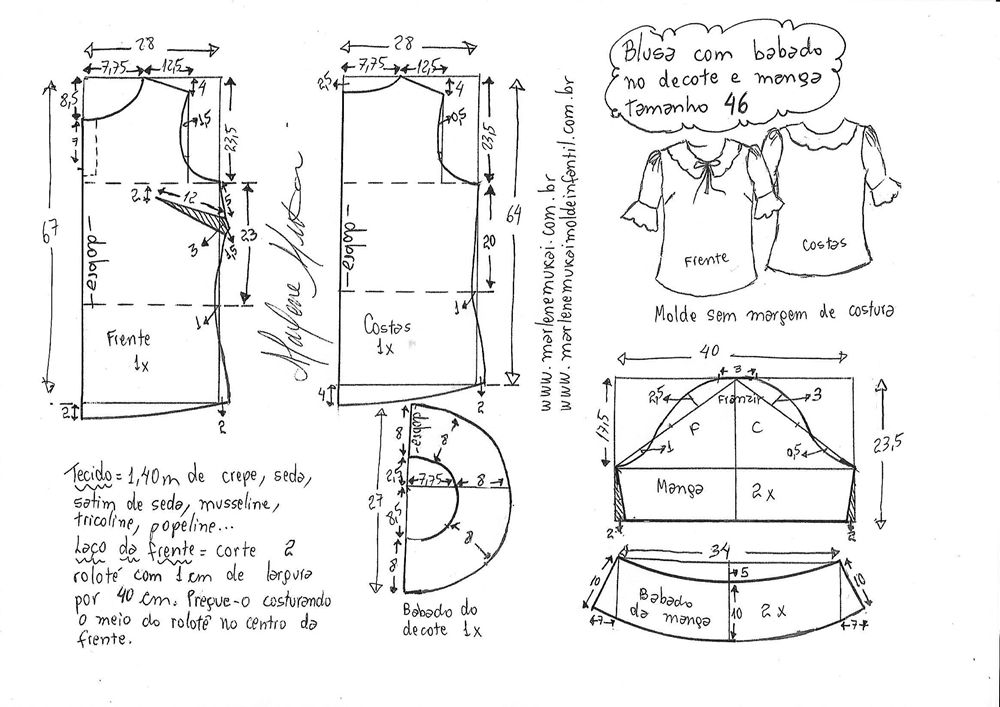 28
7,75
12,5
4
8,5
7
1,5
23,5
67
2
12
5
3
1,5
23
dobra
1
Frente
1x
2
2
Marlene Mukai
28
2,5
7,75
12,5
4
0,5
23,5
64
20
dobra
1
Costas
1x
4
2
www.marlenemukai.com.br
www.marlenemukaimoldeinfantil.com.br
Blusa com babado
no decote e manga
tamanho 46
Frente
Costas
Molde sem margem de costura
40
3
2,5
Franzir
3
17,5
F
C
23,5
1
0,5
Manga
2x
2
2
34
5
10
10
Babado
da manga
10
2x
7
7
dobra
8
8
2,5
7,75
8
27
8,5
8
8
Babado do
decote 1x
Tecido = 1,40m de crepe, seda,
satim de seda, musseline,
tricoline, popeline...
Laço da frente = corte 2
roloté com 1 cm de largura
por 40 cm. Pregue-o costurando
o meio do roloté no centro da
frente.